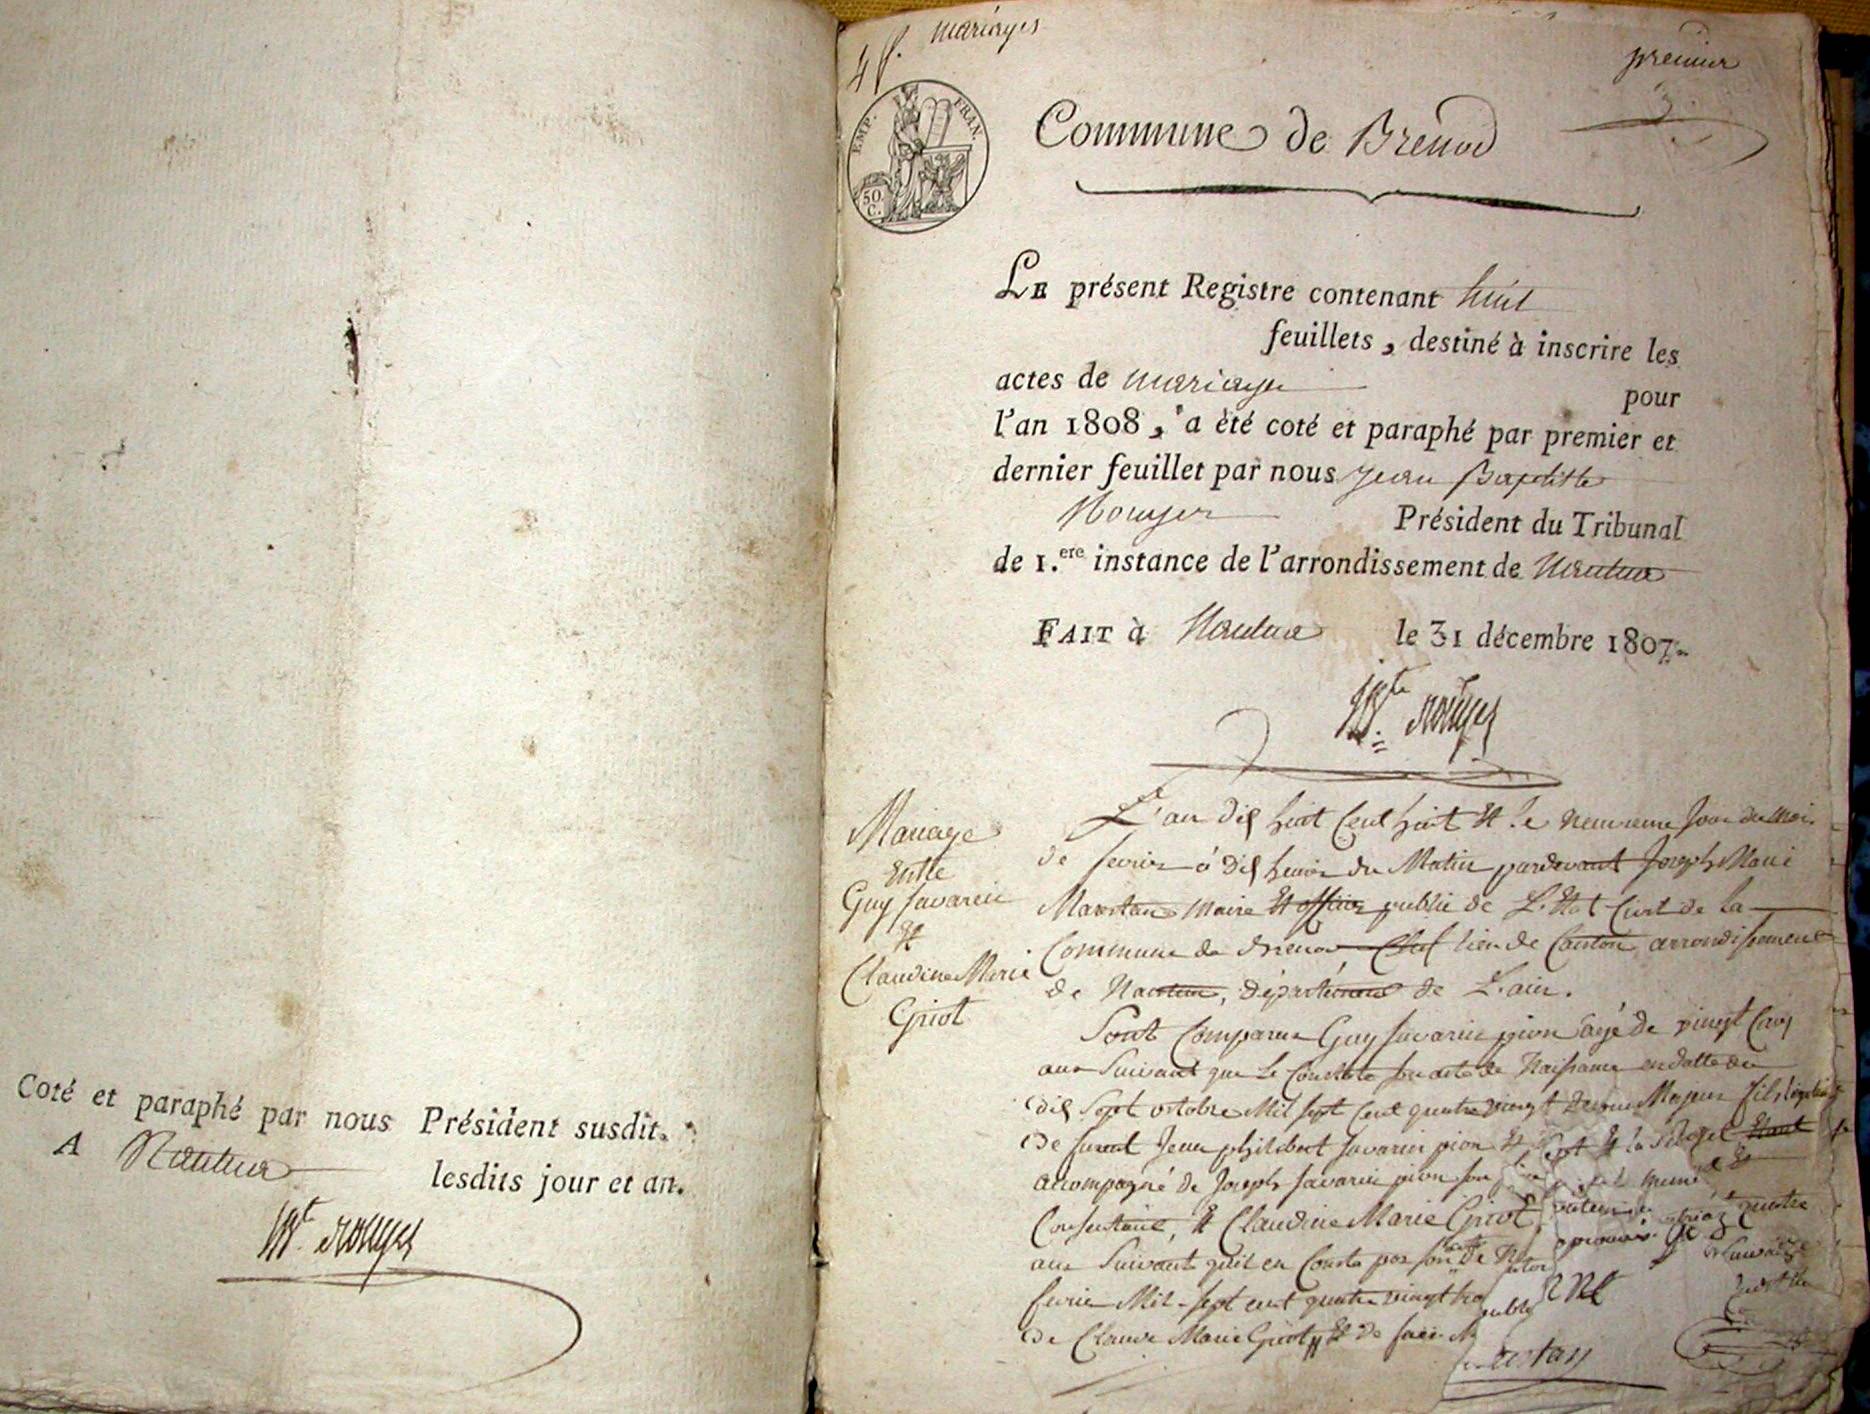 Coté et paraphé par nous Président susdit.
A Nantua lesdits jour et an.
Bte. Rouyer
4 f. mariages
premier
EMP. FRAN.
50 C.
Commune de Brenod
LE présent Registre contenant huit
feuillets, destiné à inscrire les
actes de mariages pour
l'an 1808, a été coté et paraphé par premier et
dernier feuillet par nous Jean Baptiste
Rouyer Président du Tribunal
de 1.ere instance de l'arrondissement de Nantua
FAIT à Nantua le 31 décembre 1807.
Bte. Rouyer
Mariage
Entre
Guy Savarin
Et
Claudine Marie
Griot
L'an dix huit Cent huit Et le neuvieme Jour du Mois
de fevrier à dix heures du Matin pardevant Joseph Marie
maire Et officier public de L'Etat Civil de la
Commune de Brenod, Chef lieu de Canton arrondissement
de Nantua, département de L'ain.
Sont Comparus Guy Savarin pion agé de vingt Cinq
ans Suivant que le Constate son acte de Naissance en datte du
dix Sept octobre Mil sept Cent quatre vingt deux Majeur fils
de furent Jean philibert Savarin pion Et
accompagné de Joseph Savarin pion son
Consentant, Et Claudine Marie Griot quatre
ans Suivant qu'il en Conste par son acte de
fevrier Mil sept cent quatre vingt
de Claude Marie Griot Et de